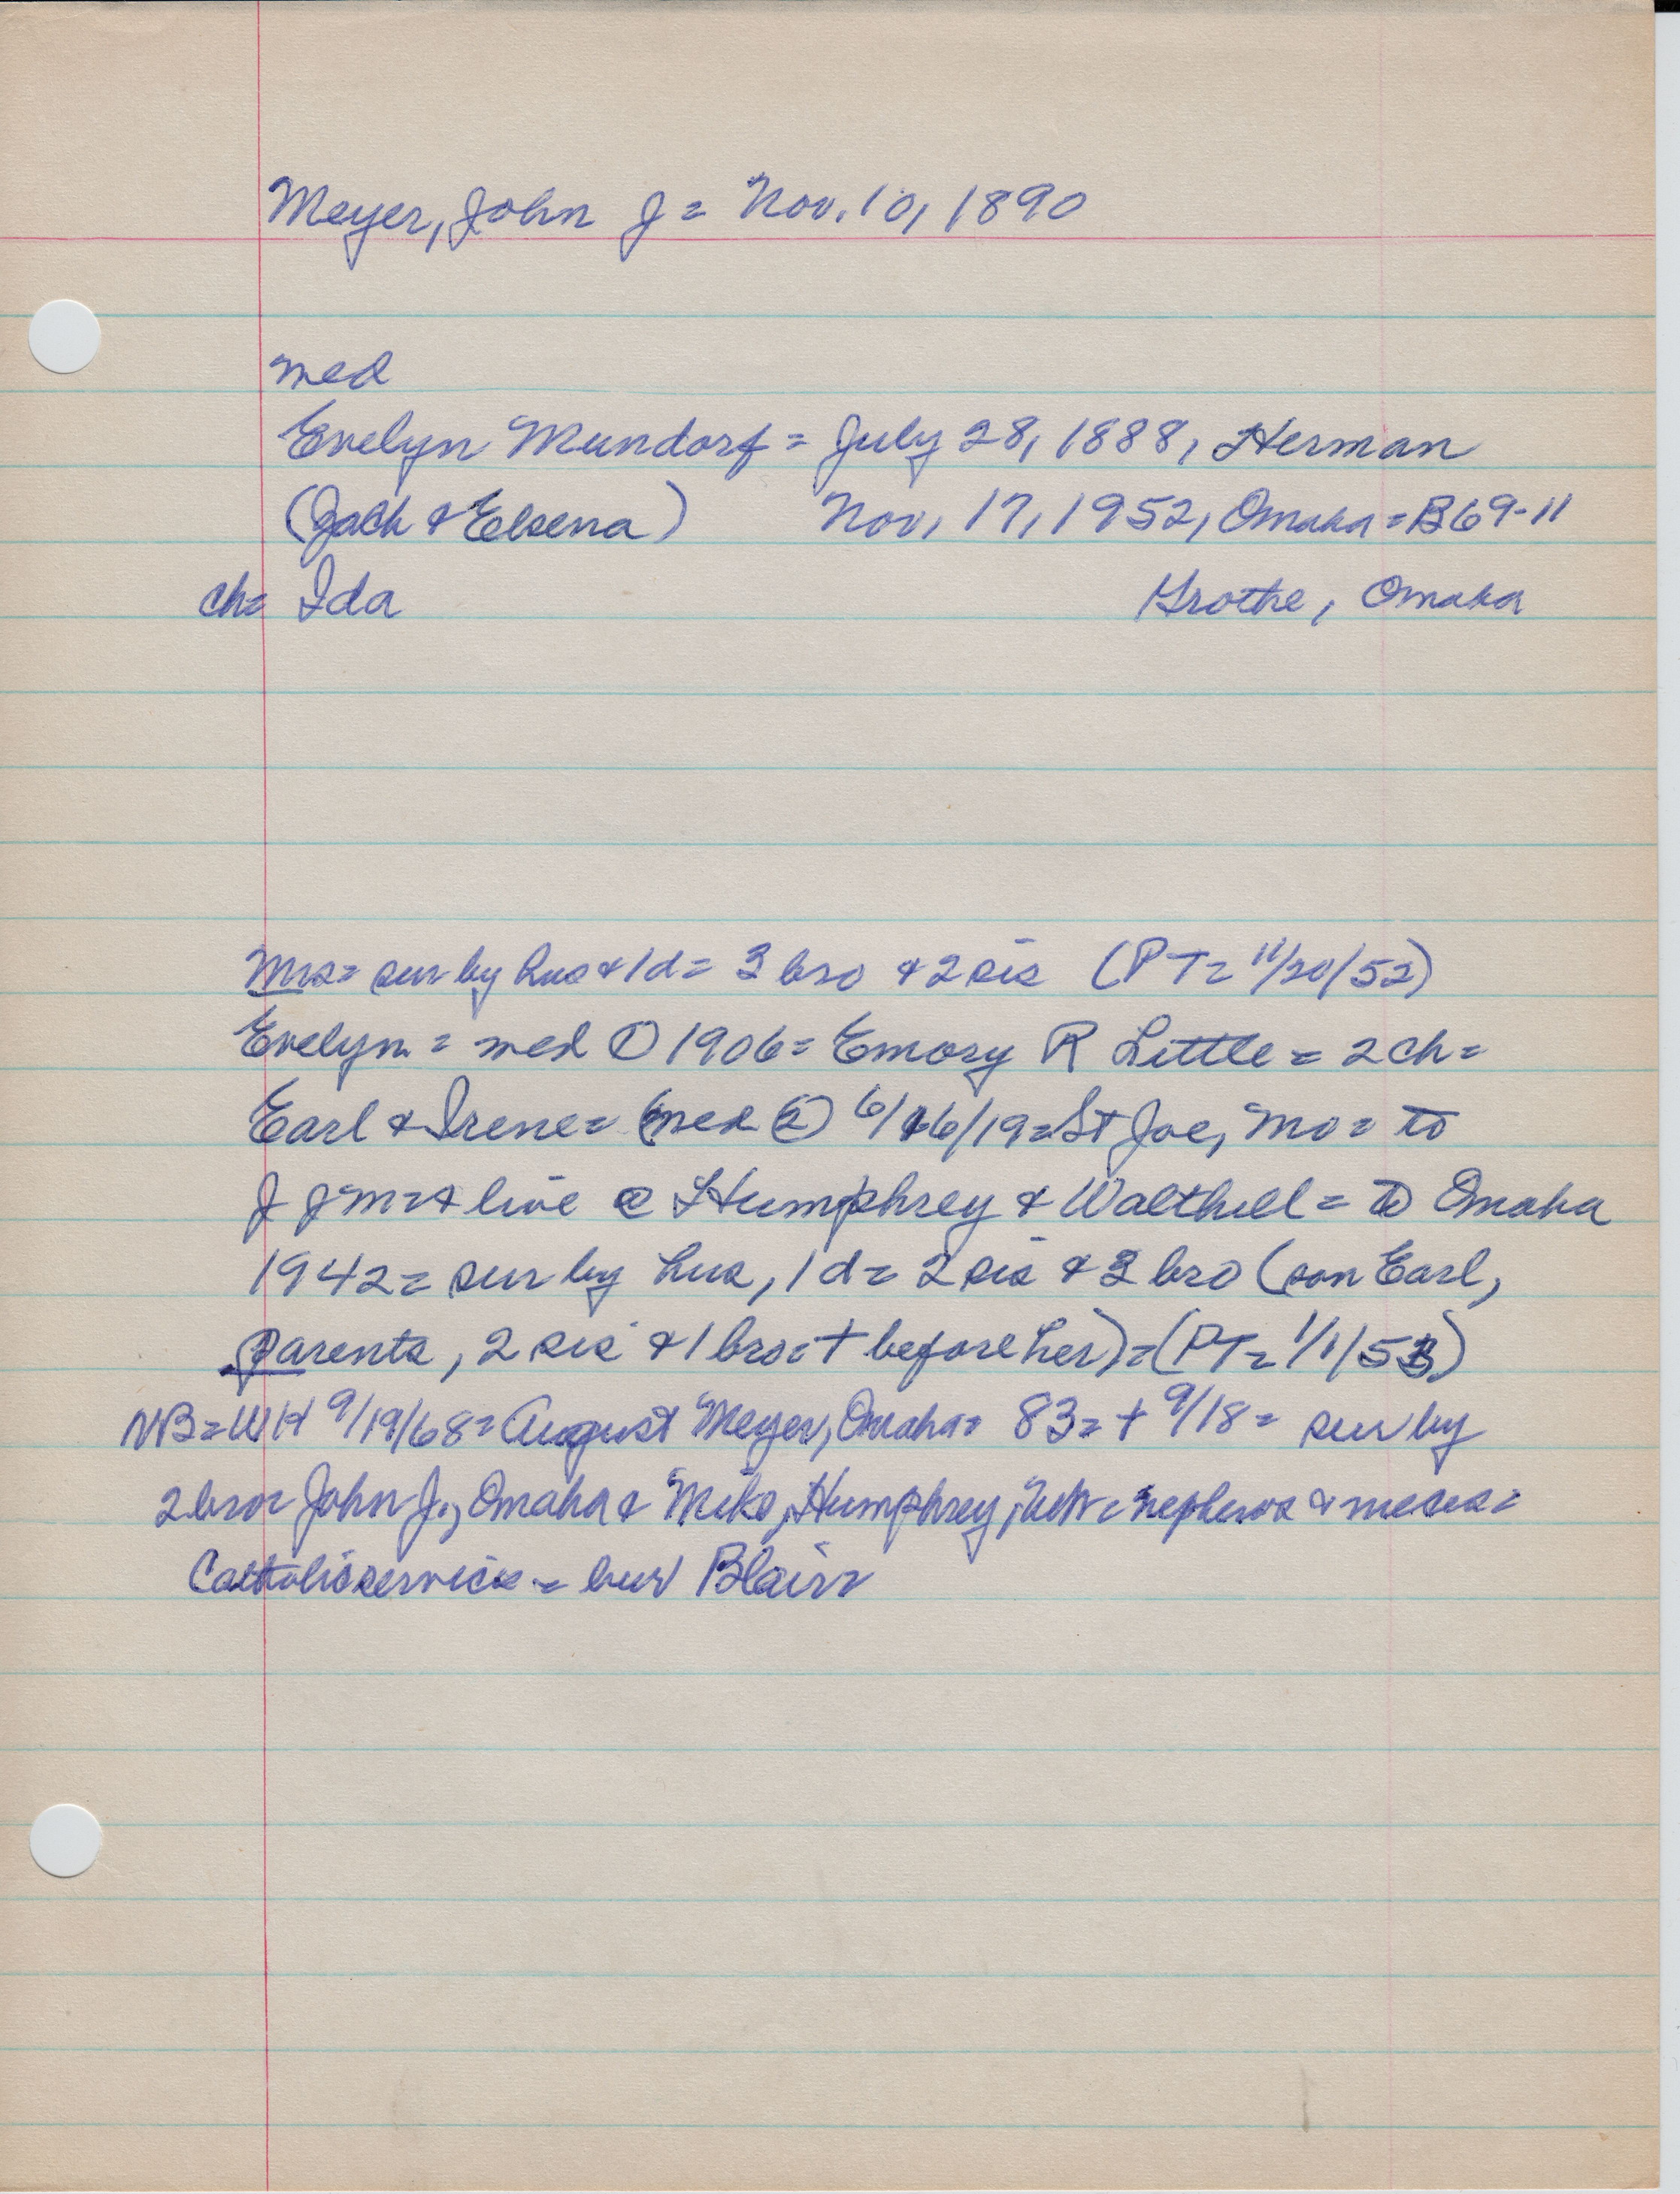 Meyer, John J = Nov. 10, 1890
med
Evelyn Mundorf = July 28, 1888, Herman
(Zach & Elsena) Nov, 17, 1952, Omaha = B69-11
ch= Ida Grothe, Omaha
Mrs= sur by hus & 1d= 3 bro & 2 sis (PT= 11/20/52)
Evelyn = med ① 1906= Emory R Little = 2 ch=
Earl & Irene= (med ② 6/16/19=St Joe, Mo= to
J J M= & live @ Humphrey & Walthill = to Omaha
1942= sur by hus, 1d= 2 sis & 3 bro (son Earl,
parents, 2 sis & 1 bro= + before her)=(PT= 1/1/53)
NB=WH 9/19/68= August Meyer, Omaha= 83= + 9/18= sur by
2 bro= John J., Omaha & Mike, Humphrey, nephews & nieces=
Catholic service = bur Blair=